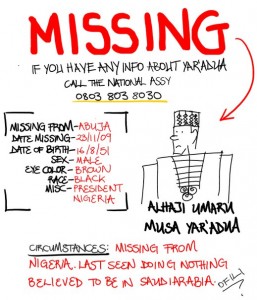 MISSING
IF YOU HAVE ANY INFO ABOUT YAR'ADUA
CALL THE NATIONAL ASSY
0803 803 8030
MISSING FROM-ABUJA
DATE MISSING-23/11/09
DATE OF BIRTH-16/8/51
SEX-MALE
EYE COLOR-BROWN
RACE-BLACK
MISC-PRESIDENT
NIGERIA
ALHAJI UMARU
MUSA YAR'ADUA
CIRCUMSTANCES: MISSING FROM
NIGERIA. LAST SEEN DOING NOTHING
BELIEVED TO BE IN SAUDI ARABIA.
OFILI